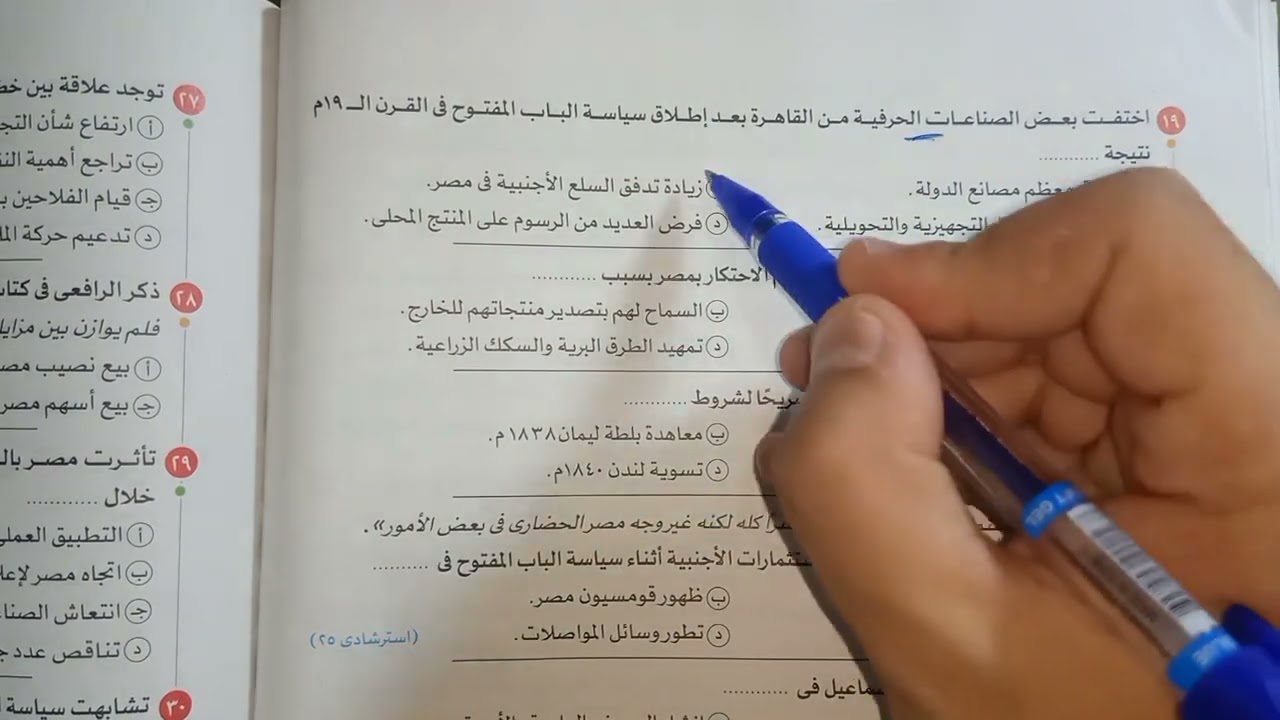 ١٩ اختفت بعض الصناعات الحرفية من القاهرة بعد إطلاق سياسة الباب المفتوح فى القرن الـ ١٩م
نتيجة ...........
معظم مصانع الدولة.
زيادة تدفق السلع الأجنبية فى مصر.
التجهيزية والتحويلية.
د فرض العديد من الرسوم على المنتج المحلى.
الاحتكار بمصر بسبب ...........
ب السماح لهم بتصدير منتجاتهم للخارج.
د تمهيد الطرق البرية والسكك الزراعية.
لشروط ...........
ب معاهدة بلطة ليمان ١٨٣٨م.
د تسوية لندن ١٨٤٠م.
كله لكنه غير وجه مصر الحضارى فى بعض الأمور».
الأجنبية أثناء سياسة الباب المفتوح فى ..........
ب ظهور قومسيون مصر.
د تطور وسائل المواصلات.
(استرشادى ٢٥)
فى ...........
٢٧ توجد علاقة بين
أ ارتفاع شأن
ب تراجع أهمية
ج قيام الفلاحين
د تدعيم حركة
٢٨ ذكر الرافعى فى
فلم يوازن بين مزايا
أ بيع نصيب مصر
ج بيع أسهم مصر
٢٩ تأثرت مصر
خلال ...........
أ التطبيق
ب اتجاه مصر
ج انتعاش
د تناقص عدد
٣٠ تشابهت سياسة